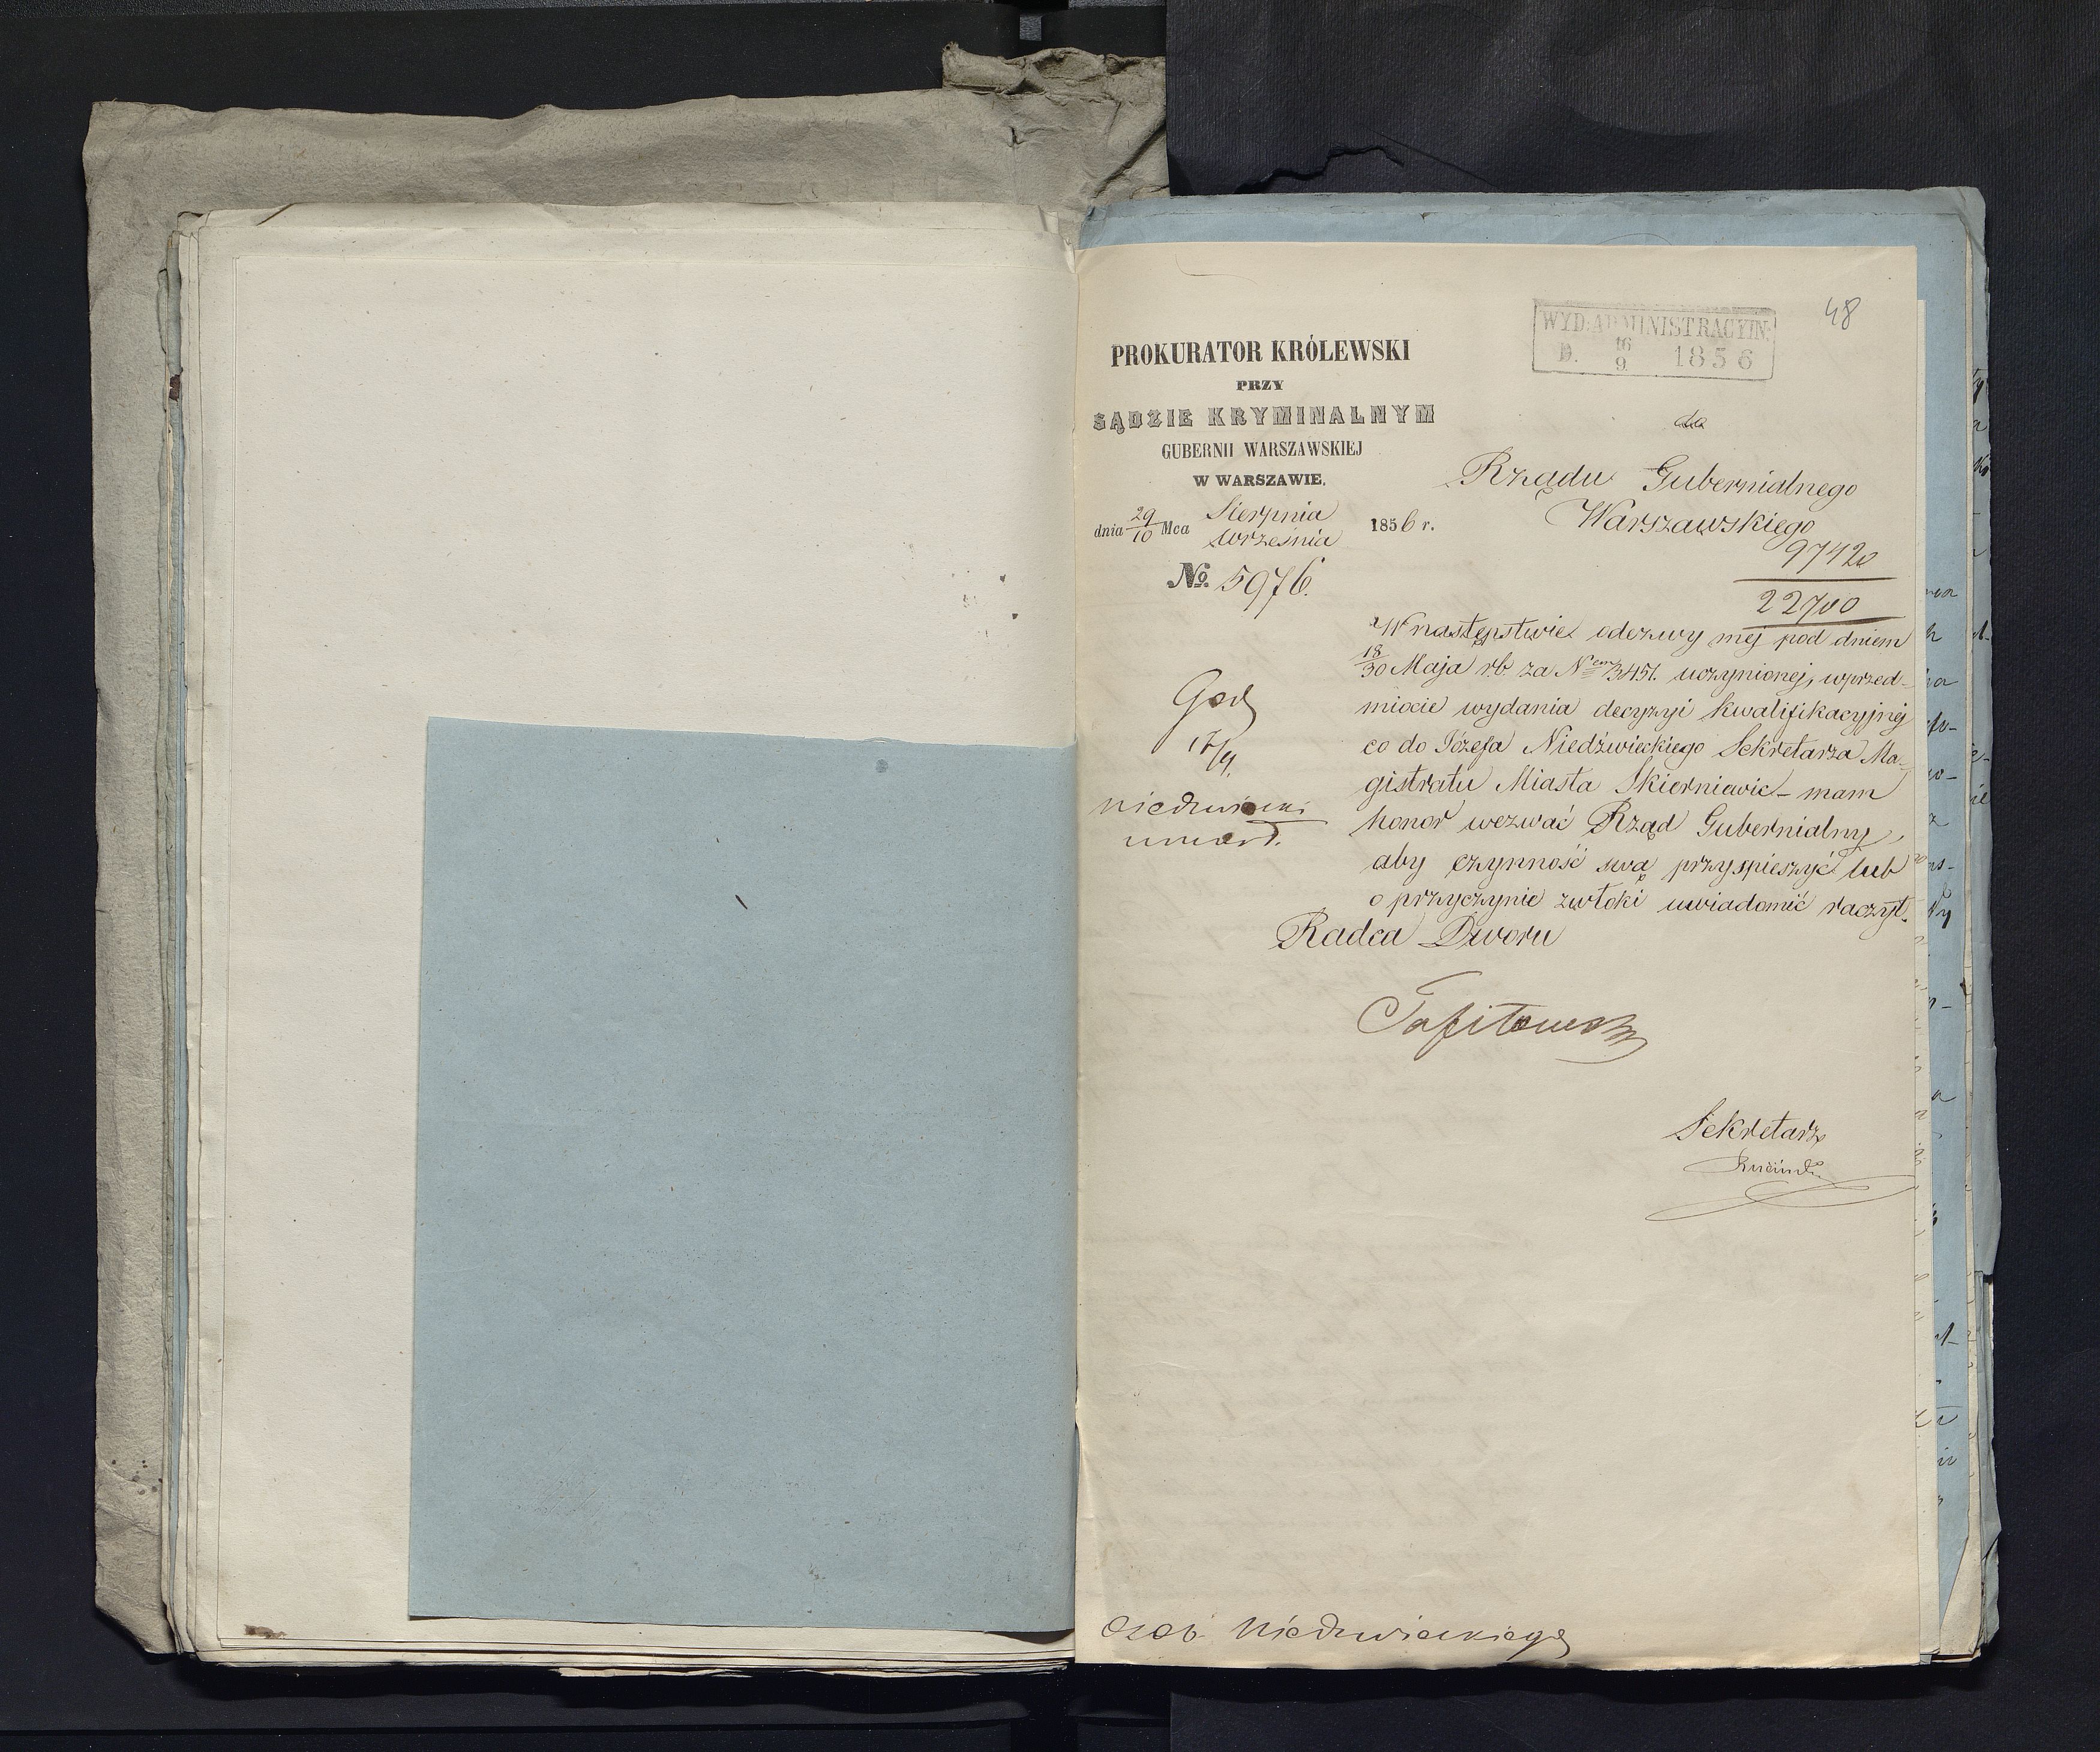 48
WYD: ADMINISTRACYIN:
D. 16/9 1856
PROKURATOR KRÓLEWSKI
PRZY
SĄDZIE KRYMINALNYM
GUBERNII WARSZAWSKIEJ
W WARSZAWIE.
dnia 29/10 Mca Sierpnia Września 1856 r.
No. 5976.
do
Rządu Gubernialnego
Warszawskiego
97420
22700
W następstwie odezwy mej pod dniem
18/30 Maja r.b. za Nem 3451. uczynionej, w przed-
miocie wydania decyzyi kwalifikacyjnej
co do Józefa Niedźwieckiego Sekretarza Ma-
gistratu Miasta Skierniewic – mam
honor wezwać Rząd Gubernialny,
aby czynność swą przyspieszyć lub
o przyczynie zwłoki uwiadomić raczył.
Radca Dworu
Sekretarz
17/9.
Niedzwiecki
umarł.
Osob. Niedzwieckiego